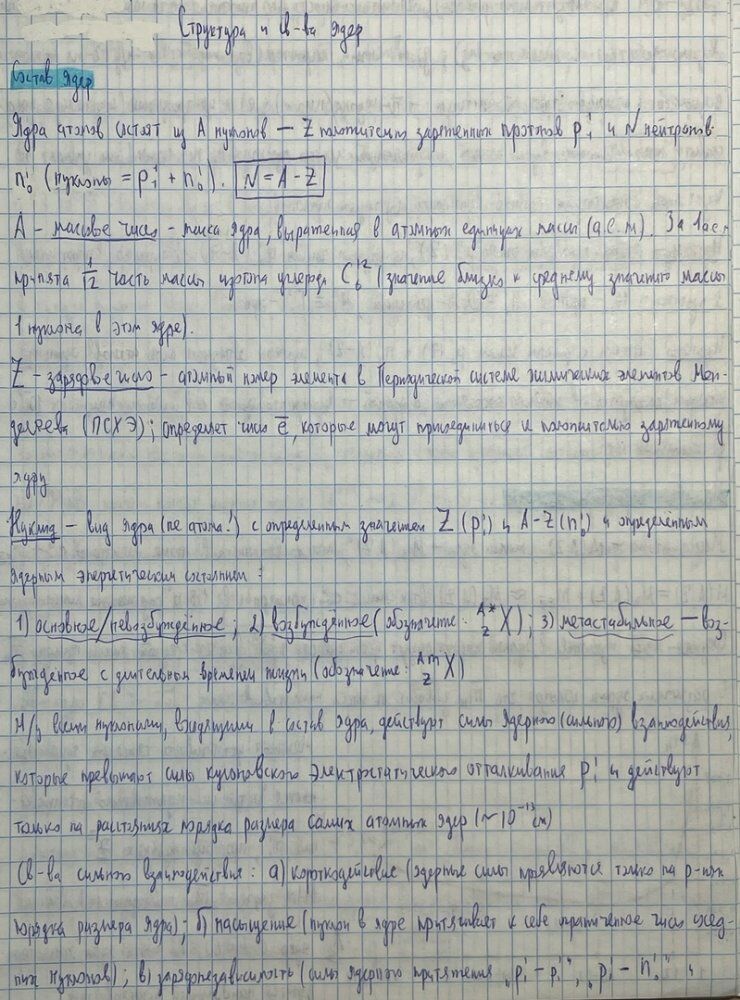 Структура и св-ва ядер
Состав ядер
Ядра атомов состоят из A нуклонов — Z положительно заряженных протонов p₁¹ и N нейтронов
n₀¹ (нуклоны = p₁¹ + n₀¹). N = A - Z
A - массовое число - масса ядра, выраженная в атомных единицах массы (а.е.м). За 1 а.е.м
принята 1/12 часть массы изотопа углерода C₆¹² (значение близко к среднему значению массы
1 нуклона в этом ядре).
Z - зарядовое число - атомный номер элемента в Периодической системе химических элементов Мен-
делеева (ПСХЭ); определяет число e̅, которые могут присоединиться к положительно заряженному
ядру
Нуклид - вид ядра (не атома!) с определенным значением Z (p₁¹) и A-Z (n₀¹) и определённым
ядерным энергетическим состоянием:
1) основное/невозбуждённое; 2) возбуждённое (обозначение: ᴬ*_Z X); 3) метастабильное — воз-
бужденное с длительным временем жизни (обозначение: ᴬᵐ_Z X)
М/у всеми нуклонами, входящими в состав ядра, действуют силы ядерного (сильного) взаимодействия,
которые превышают силы кулоновского электростатического отталкивания p₁¹ и действуют
только на расстояниях порядка размера самих атомных ядер (~10⁻¹³ см)
Св-ва сильного взаимодействия: а) короткодействие (ядерные силы проявляются только на р-ях
порядка размера ядра); б) насыщение (нуклон в ядре притягивает к себе ограниченное число сосед-
них нуклонов); в) зарядонезависимость (силы ядерного притяжения „p₁¹ - p₁¹", „p₁¹ - n₀¹" и